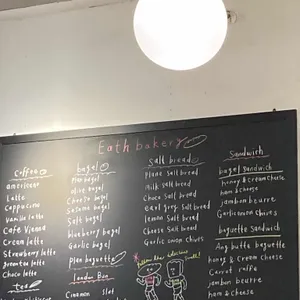 Eath bakery
Coffee
americano
Latte
Cappuccino
Vanilla latte
Cafe Vienna
Cream latte
Strawberry latte
Choco latte
tea
bagel
Plan bagel
olive bagel
Cheese bagel
Sesame bagel
Salt bagel
blueberry bagel
Garlic bagel
Plan baguette
London Bun
Cinnamon
Salt bread
Plane Salt bread
milk Salt bread
Choco Salt bread
earl grey Salt bread
lemon Salt bread
Cheese Salt bread
Garlic onion chives
Sandwich
bagel Sandwich
honey & cream cheese
ham & cheese
jambon beurre
Garlic onion chives
baguette Sandwich
Ang butte baguette
honey & cream cheese
Carrot raffe
jambon beurre
ham & cheese